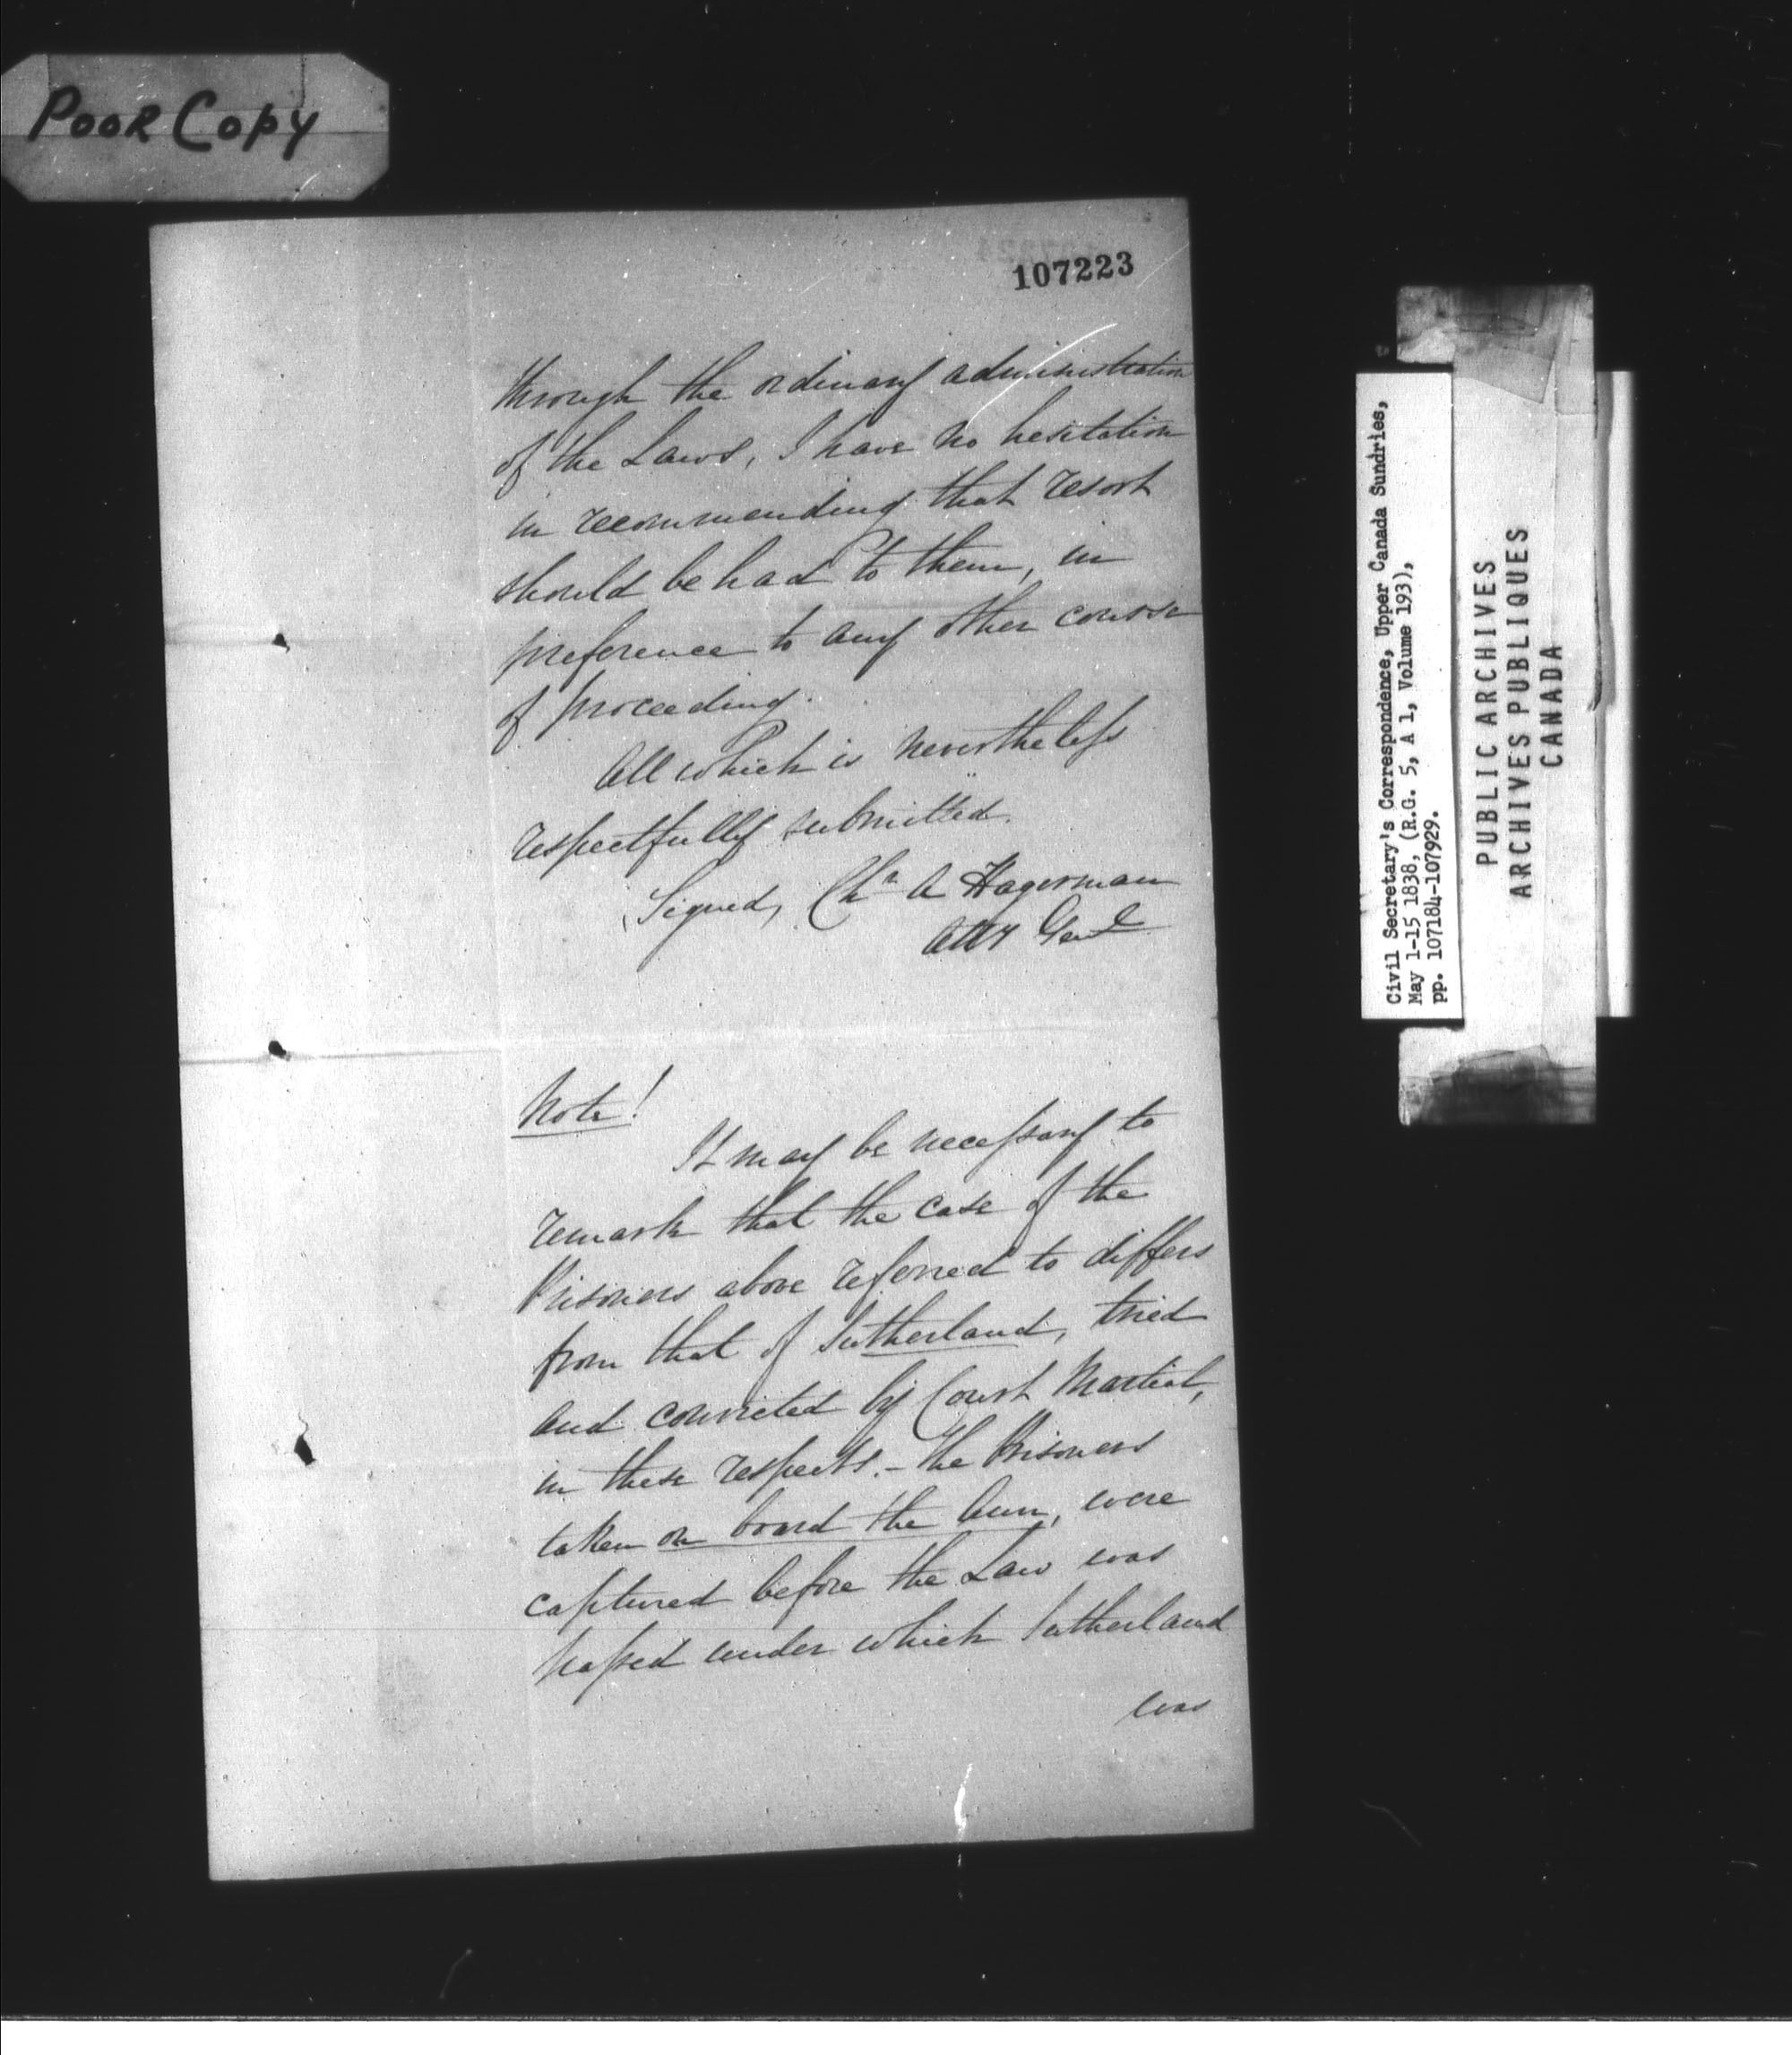 Poor Copy
107223
through the ordinary administration
of the Laws, I have no hesitation
in recommending that resort
should be had to them, in
preference to any other course
of proceeding.
All which is nevertheless
respectfully submitted.
Signed, Chs A Hagerman
Atty Genl
Note!
It may be necessary to
remark that the case of the
Prisoners above referred to differs
from that of Sutherland, tried
and convicted by Court Martial,
in these respects. – The Prisoners
taken on board the Ann, were
captured before the Law was
passed under which Sutherland
was
Civil Secretary's Correspondence, Upper Canada Sundries,
May 1-15 1838, (R.G. 5, A 1, Volume 193),
pp. 107184-107929.
PUBLIC ARCHIVES
ARCHIVES PUBLIQUES
CANADA